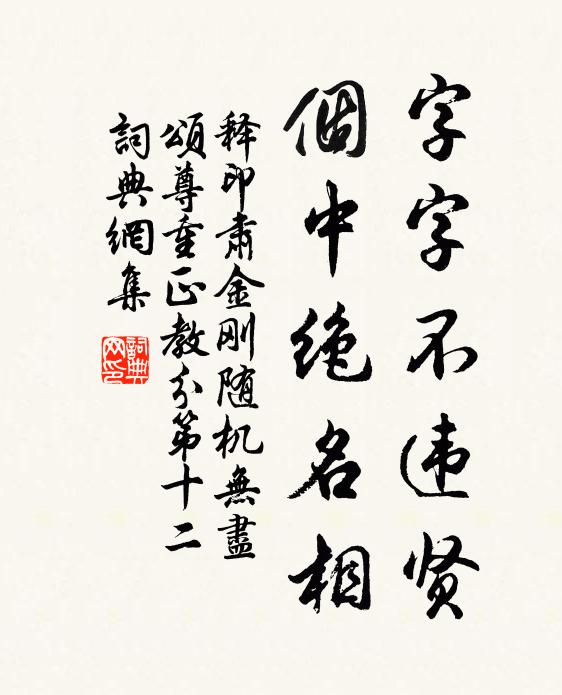 字字不违贤
個中绝名相
释印肃金刚随机無盡
頌尊重正教分第十二
詞典網集
詞典网印